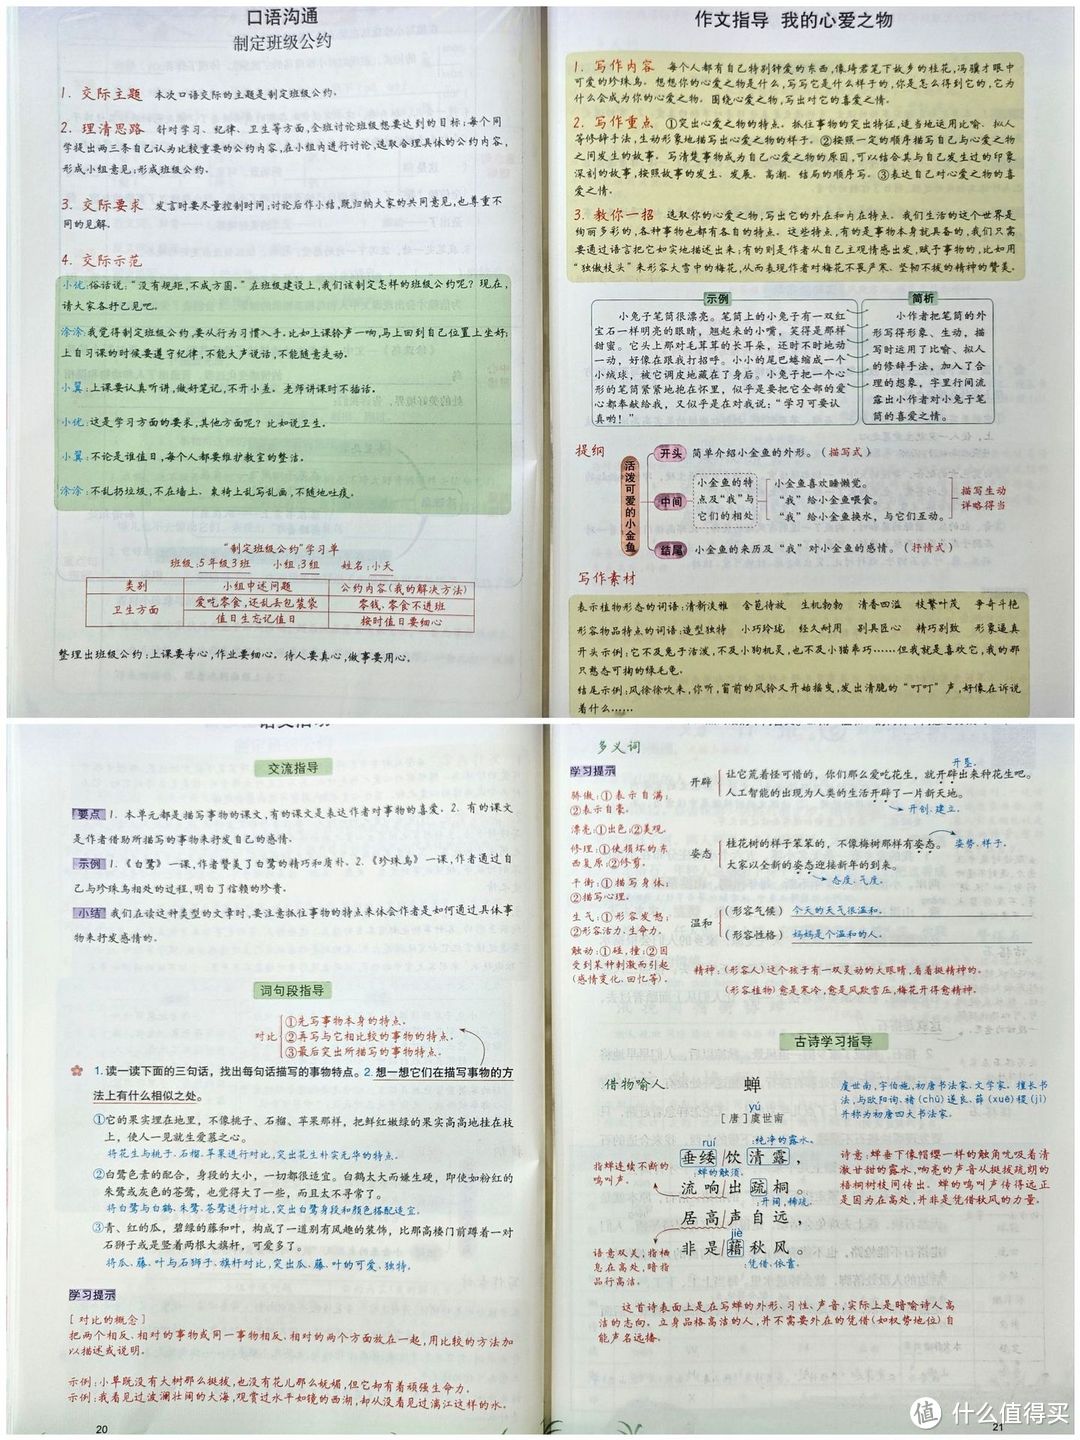 口语沟通
制定班级公约
1. 交际主题 本次口语交际的主题是制定班级公约。
2. 理清思路 针对学习、纪律、卫生等方面,全班讨论班级想要达到的目标;每个同
学提出两三条自己认为比较重要的公约内容,在小组内进行讨论,选取合理具体的公约内容,
形成小组意见;形成班级公约。
3. 交际要求 发言时要尽量控制时间;讨论后作小结,既归纳大家的共同意见,也尊重不
同的见解。
4. 交际示范
小优:俗话说:“没有规矩,不成方圆。”在班级建设上,我们该制定怎样的班级公约呢?现在,
请大家各抒己见吧。
涂涂:我觉得制定班级公约,要从行为习惯入手。比如上课铃声一响,马上回到自己位置上坐好;
上自习课的时候要遵守纪律,不能大声说话,不能随意走动。
小翼:上课要认真听讲,做好笔记,不开小差。老师讲课时不插话。
小优:这是学习方面的要求,其他方面呢?比如说卫生。
小翼:不论是谁值日,每个人都要维护教室的整洁。
涂涂:不乱扔垃圾,不在墙上、桌椅上乱写乱画,不随地吐痰。
“制定班级公约”学习单
班级:5年级3班 小组:3组 姓名:小天
类别 小组中述问题 公约内容(我的解决方法)
卫生方面 爱吃零食,还乱丢包装袋 零钱、零食不进班
值日生忘记值日 按时值日要细心
整理出班级公约:上课要专心,作业要细心。待人要真心,做事要用心。
作文指导 我的心爱之物
1. 写作内容 每个人都有自己特别钟爱的东西,像琦君笔下故乡的桂花,冯骥才眼中
可爱的珍珠鸟。想想你的心爱之物是什么,写写它是什么样子的,你是怎么得到它的,它为
什么会成为你的心爱之物。围绕心爱之物,写出对它的喜爱之情。
2. 写作重点 ①突出心爱之物的特点。抓住事物的突出特征,适当地运用比喻、拟人
等修辞手法,生动形象地描写出心爱之物的样子。②按照一定的顺序描写自己与心爱之物
之间发生的故事。写清楚事物成为自己心爱之物的原因,可以结合其与自己发生过的印象
深刻的故事,按照故事的发生、发展、高潮、结局的顺序写。③表达自己对心爱之物的喜
爱之情。
3. 教你一招 选取你的心爱之物,写出它的外在和内在特点。我们生活的这个世界是
绚丽多彩的,各种事物也都有各自的特点。这些特点,有的是事物本身就具备的,我们只需
要通过语言把它如实地描述出来;有的则是作者从自己主观情感出发,赋予事物的,比如用
“独傲枝头”来形容大雪中的梅花,从而表现作者对梅花不畏严寒、坚韧不拔的精神的赞美。
示例
小兔子笔筒很漂亮。笔筒上的小兔子有一双红
宝石一样明亮的眼睛,翘起来的小嘴,笑得是那样
甜蜜。它头上那对毛茸茸的长耳朵,还时不时地动
一动,好像在跟我打招呼。小小的尾巴蜷缩成一个
小绒球,被它调皮地藏在了身后。小兔子把一个心
形的笔筒紧紧地抱在怀里,似乎是要把它全部的爱
心都奉献给我,又似乎是在对我说:“学习可要认
真哟!”
简析
小作者把笔筒的外
形写得形象、生动,描
写时运用了比喻、拟人
的修辞手法,加入了合
理的想象,字里行间流
露出小作者对小兔子笔
筒的喜爱之情。
提纲
活泼可爱的小金鱼
开头 简单介绍小金鱼的外形。(描写式)
中间 小金鱼的特
点及“我”与
它们的相处
小金鱼喜欢睡懒觉。
“我”给小金鱼喂食。
“我”给小金鱼换水,与它们互动。
描写生动
详略得当
结尾 小金鱼的来历及“我”对小金鱼的感情。(抒情式)
写作素材
表示植物形态的词语:清新淡雅 含苞待放 生机勃勃 清香四溢 枝繁叶茂 争奇斗艳
形容物品特点的词语:造型独特 小巧玲珑 经久耐用 别具匠心 精巧别致 形象逼真
开头示例:它不及兔子活泼,不及小狗机灵,也不及小猫乖巧……但我就是喜欢它,我的那
只憨态可掬的绿毛龟。
结尾示例:风徐徐吹来,你听,窗前的风铃又开始摇曳,发出清脆的“叮叮”声,好像在诉说
着什么……
语文活动
交流指导
要点 1. 本单元都是描写事物的课文,有的课文是表达作者对事物的喜爱。2. 有的课文
是作者借助所描写的事物来抒发自己的感情。
示例 1.《白鹭》一课,作者赞美了白鹭的精巧和质朴。2.《珍珠鸟》一课,作者通过自
己与珍珠鸟相处的过程,明白了信赖的珍贵。
小结 我们在读这种类型的文章时,要注意抓住事物的特点来体会作者是如何通过具体事
物来抒发感情的。
词句段指导
对比
①先写事物本身的特点。
②再写与它相比较的事物的特点。
③最后突出所描写的事物特点。
1. 读一读下面的三句话,找出每句话描写的事物特点。2. 想一想它们在描写事物的方
法上有什么相似之处。
①它的果实埋在地里,不像桃子、石榴、苹果那样,把鲜红嫩绿的果实高高地挂在枝
上,使人一见就生爱慕之心。
将花生与桃子、石榴、苹果进行对比,突出花生朴实无华的特点。
②白鹭色素的配合,身段的大小,一切都很适宜。白鹤太大而嫌生硬,即使如粉红的
朱鹭或灰色的苍鹭,也觉得大了一些,而且太不寻常了。
将白鹭与白鹤、朱鹭、苍鹭进行对比,突出白鹭身段和颜色搭配适宜。
③青、红的瓜,碧绿的藤和叶,构成了一道别有风趣的装饰,比那高楼门前蹲着一对
石狮子或是竖着两根大旗杆,可爱多了。
将瓜、藤、叶与石狮子、旗杆对比,突出瓜、藤、叶的可爱、独特。
学习提示
[对比的概念]
把两个相反、相对的事物或同一事物相反、相对的两个方面放在一起,用比较的方法加
以描述或说明。
示例:小草既没有大树那么挺拔,也没有花儿那么妩媚,但它却有着顽强生命力。
示例:我看见过波澜壮阔的大海,观赏过水平如镜的西湖,却从没看见过漓江这样的水。
20
多义词
学习提示
骄傲:①表示自满;
②表示自豪。
漂亮:①出色;②美观。
修理:①使损坏的东
西复原;②修剪。
平衡:①描写身体;
②描写心理。
生气:①形容发怒;
②形容活力、生命力。
触动:①碰,撞;②因
受到某种刺激而引起
(感情变化、回忆等)。
开辟
开垦。
让它荒着怪可惜的,你们那么爱吃花生,就开辟出来种花生吧。
人工智能的出现为人类的生活开辟了一片新天地。
开创、建立。
姿态
桂花树的样子笨笨的,不像梅树那样有姿态。 姿势,样子。
大家以全新的姿态迎接新年的到来。
态度,气度。
温和
(形容气候) 今天的天气很温和。
(形容性格) 妈妈是个温和的人。
精神:(形容人)这个孩子有一双灵动的大眼睛,看着挺精神的。
(形容植物)愈是寒冷,愈是风欺雪压,梅花开得愈精神。
古诗学习指导
借物喻人 蝉
yú
[唐]虞世南
虞世南,字伯施,初唐书法家、文学家。擅长书
法,与欧阳询、褚(chǔ)遂良、薛(xuē)稷(jì)
并称为初唐四大书法家。
ruí
:纯净的露水。
垂緌饮清露,
:蝉的触须。
流响出疏桐。
:开阔、稀疏。
居高声自远,
jiè
非是藉秋风。
:凭借、依靠。
指蝉连续不断的
鸣叫声。
语意双关,指栖
息在高处,暗指
品行高洁。
诗意:蝉垂下像帽缨一样的触角吮吸着清
澈甘甜的露水,响亮的声音从挺拔疏朗的
梧桐树枝间传出。蝉的鸣叫声传得远正
是因为在高处,并非是凭借秋风的力量。
这首诗表面上是在写蝉的外形、习性、声音,实际上是暗喻诗人高
洁的志向。立身品格高洁的人,并不需要外在的凭借(如权势地位)自
能声名远播。
21
值 什么值得买